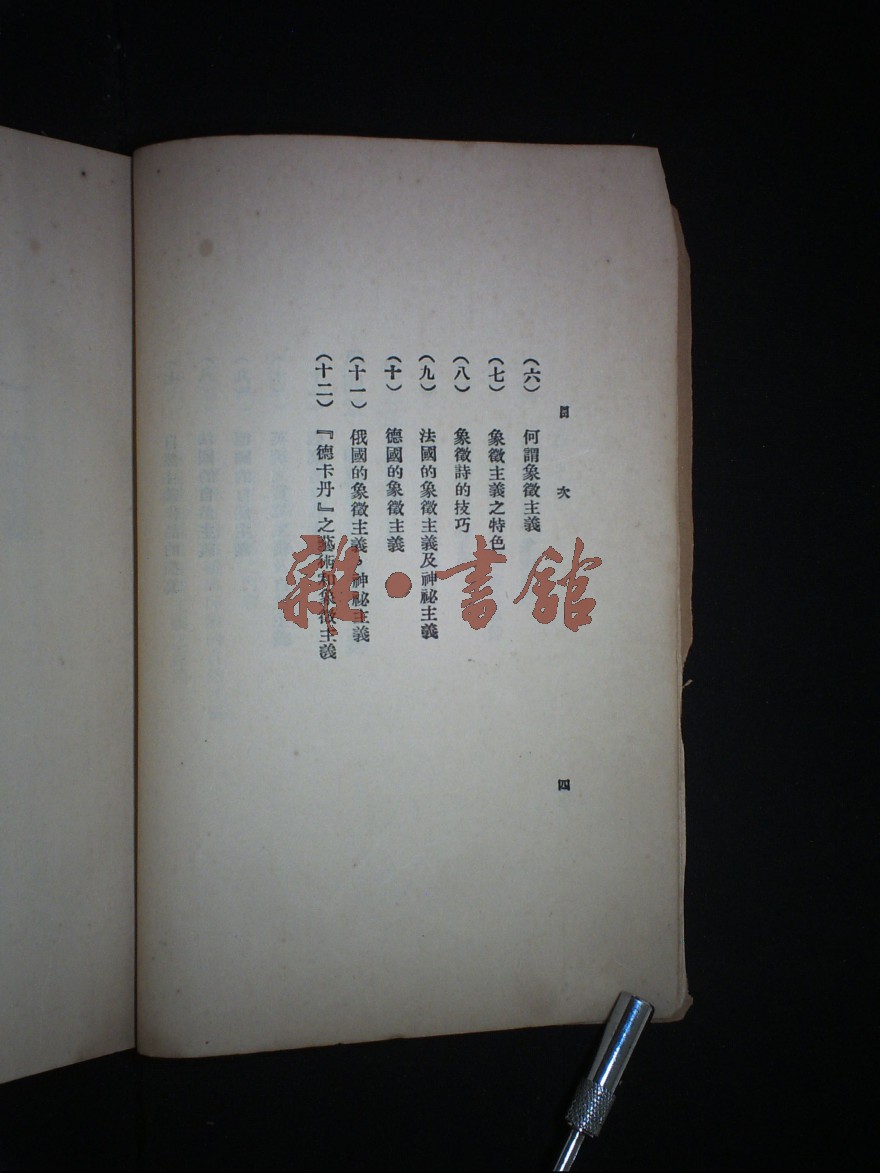 目次
四
（六）　何謂象徵主義
（七）　象徵主義之特色
（八）　象徵詩的技巧
（九）　法國的象徵主義及神祕主義
（十）　德國的象徵主義
（十一）　俄國的象徵主義，神祕主義
（十二）　『德卡丹』之藝術和象徵主義
雜·書館